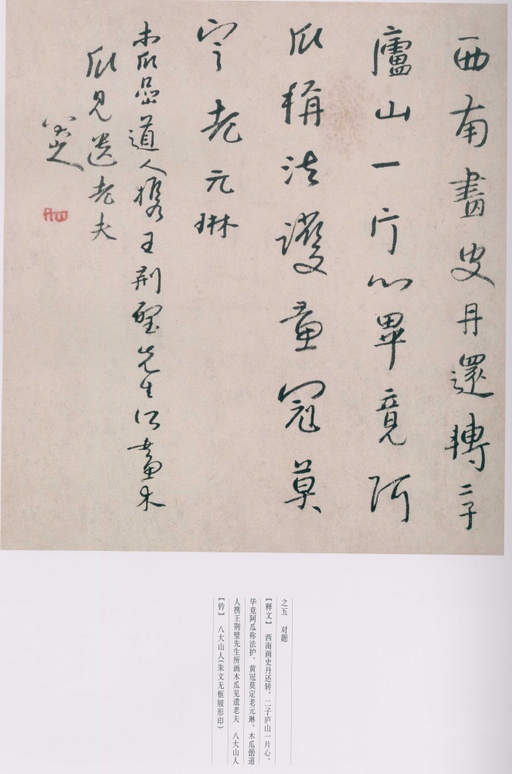 西南畫史丹還轉二子
廬山一片心畢竟阿
瓜稱法護黃冠莫
定老元琳
木瓜嵒道人携王荆璧先生所畫木
瓜見遺老夫
八大山人
之五 对题
【释文】 西南画史丹还转，二子庐山一片心。
毕竟阿瓜称法护，黄冠莫定老元琳。木瓜喦道
人携王荆璧先生所画木瓜见遗老夫 八大山人
【钤】 八大山人(朱文无框屐形印)